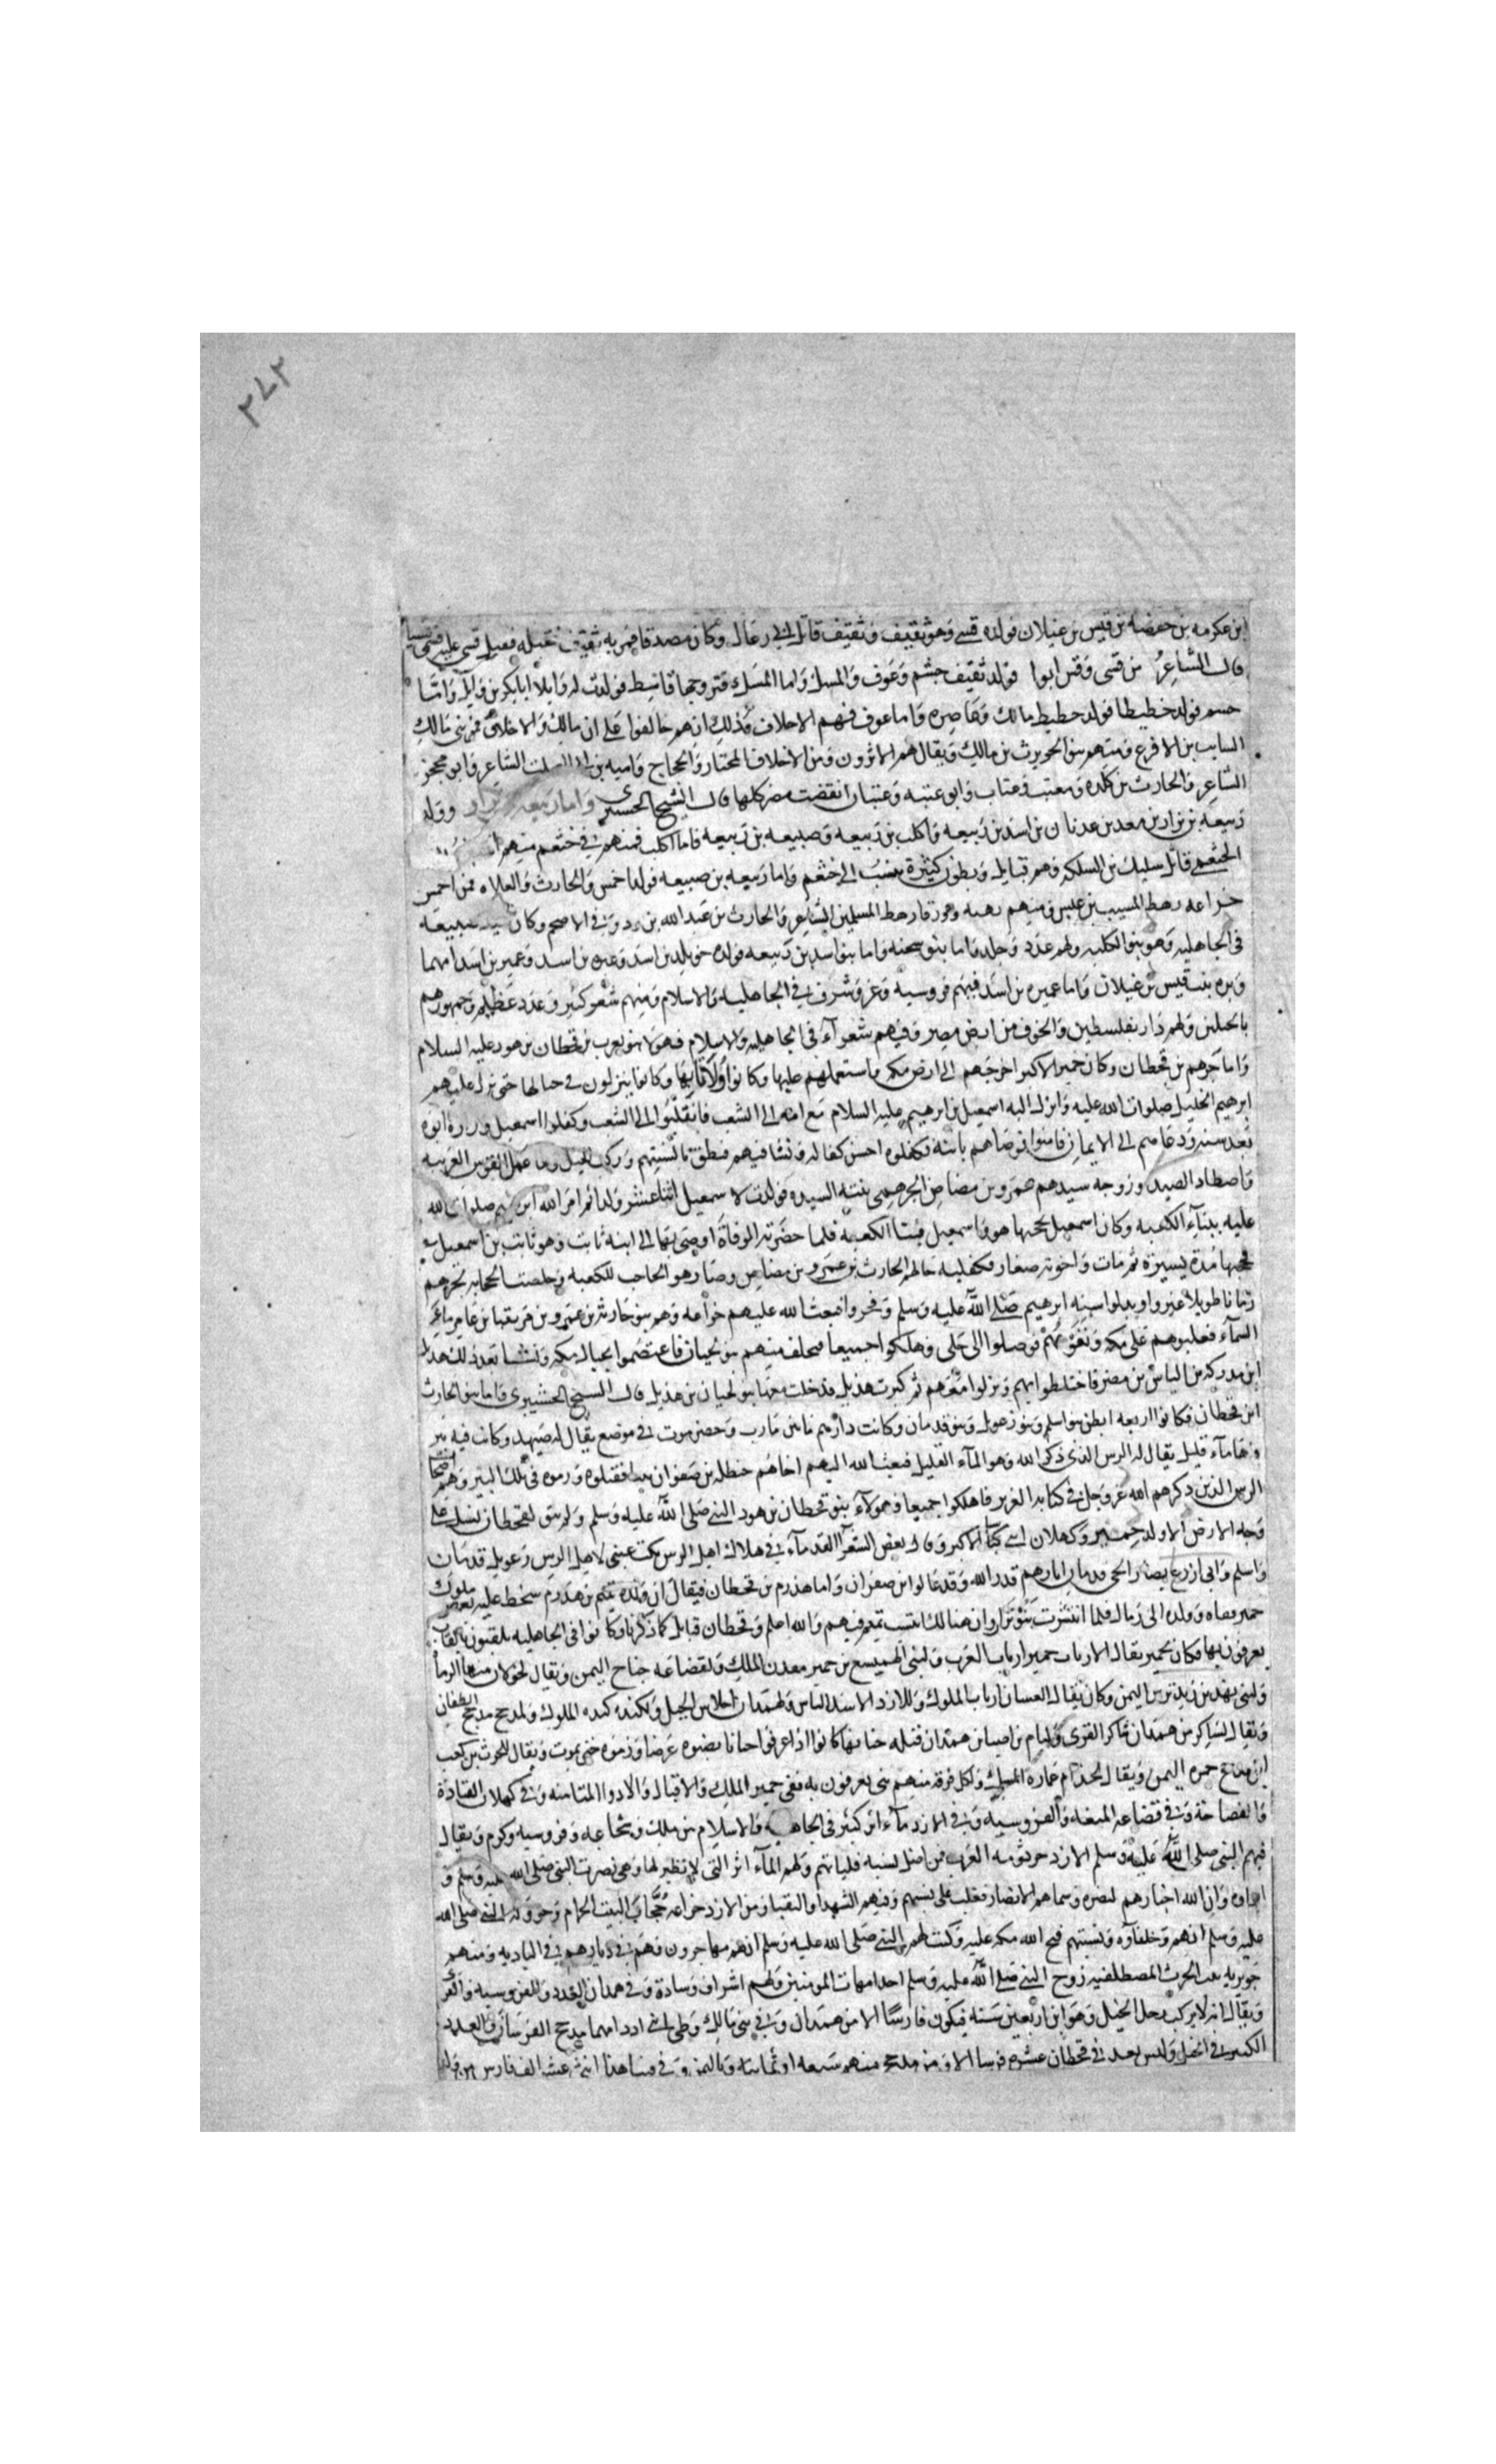 ٢٧٢
ابن عكرمه بن خصفه بن قيس بن عيلان فولده قسي وهو ثقيف وثقيف قاتل ابي رغال وكان مصدقا فمر به ثقيف فقتله فقيل قسي عليه فسمي قسيا
قال الشاعر نحن قسي وقسي ابونا فولد ثقيف جشم وعوف والمسك واما المسك فتزوجها قاسط فولدت له وايلا ابا بكر بن وايل واما
جشم فولد حطيطا فولد حطيط مالك وغاضره واما عوف فهم الاحلاف وذلك انهم حالفوا على ابن مالك والاحلاف فمن بني مالك
السايب بن الاقرع ومنهم بنو الحويرث بن مالك ويقال هم الاثرون ومن الاحلاف المختار والحجاج واميه بن ابي الصلت الشاعر وابو محجن
الشاعر والحارث بن كلده ومعتب وعتاب وابو عتبه وعتبان انقضت مضر كلها قال الشيخ الحسيبري واما ربيعه بن نزار وولد
ربيعه بن نزار بن معد بن عدنان بن اسد بن ربيعه واكلب بن ربيعه وضبيعه بن ربيعه فاما اكلب فمنهم في خثعم منهم
الخثعمي قاتل سليك بن السلكه وهم قبايل وبطون كثيرة ينسب الى خثعم واما ربيعه بن ضبيعه فولد احمس والحارث والعلاء فمن احمس
خزاعه رهط المسيب بن علس ومنهم رهط المسلمين الشاعر والحارث بن عبد الله بن الاضجم وكان سيد ضبيعه
في الجاهليه وهو بنو الكلبه ولهم عدد وجلد واما بنو شحنه واما بنو اسد بن ربيعه فولده جويلد بن اسد وعنزه بن اسد وعمير بن اسد امهما
وبره بنت قيس بن عيلان واما عميره بن اسد فيهم فروسيه وعز وشرف في الجاهليه والاسلام ومنهم شعر كثير وعدد عظيم وجمهورهم
ولهم دار بفلسطين والحوف من ارض مصر وفيهم شعرآء في الجاهليه والاسلام فهولا بنو يعرب بن قحطان بن هود عليه السلام
واما جرهم بن قحطان وكان حمير الاكبر اخرجهم الى ارض مكه واستعملهم عليها وكانوا ولاة بها وكانوا ينزلون في جبالها حتى نزل عليهم
ابرهيم الخليل صلوات الله عليه وانزل اليه اسمعيل بن ابرهيم عليه السلام مع امه الى الشعب فانقلبوا الى الشعب وكفلوا اسمعيل وزاره ابوه
بعد سنه ودعاهم الى الايمان فامنوا فوصاهم بابنه فكفلوه احسن كفاله ونشا فيهم فنطق بالسنتهم وركب الخيل وعمل القوس العربيه
واصطاد الصيد وزوجه سيدهم عمرو بن مضاض الجرهمي بنته السيده فولدت لاسمعيل اثنا عشر ولدا ثم امر الله ابرهيم صلوات الله
عليه ببنآء الكعبه وكان اسمعيل يحجبها هو واسمعيل فبنيا الكعبه فلما حضرته الوفاة اوصى بها الى ابنه ثابت وهو ثابت بن اسمعيل
فحجبها مدة يسيرة ثم مات واخوته صغار فكفلهم خالهم الحارث بن عمرو بن مضاض وصار هو الحاجب للكعبه وخلصت الحجابه لجرهم
زمانا طويلا غيروا وبدلوا سنة ابرهيم صلى الله عليه وسلم وفجروا فبعث الله عليهم خزاعه وهم بنو حارثه بن عمرو بن مزيقيا بن عامر مآء
السمآء فغلبوهم على مكه ونفوهم فوصلوا الى حلي وهلكوا جميعا فتخلف منهم بنو لحيان فاعتصموا بجبال مكه ونشا بعد ذلك هذيل
ابن مدركه بن الياس بن مضر فاختلطوا بهم ونزلوا معهم ثم كبرت هذيل فدخلت معها بنو لحيان بن هذيل قال الشيخ الحسيبري واما بنو الحارث
ابن قحطان فكانوا اربعه ابطن بنو اسلم وبنو زعويل وبنو قدمان وكانت دارهم ما بين مارب وحضرموت في موضع يقال له صيهد وكانت فيه بير
وبها مآء قليل يقال له الرس الذي ذكر الله وهو المآء القليل فبعث الله اليهم اخاهم حنظله بن صفوان نبيا فقتلوه ورموه في تلك البير وهم اصحاب
الرس الذين ذكرهم الله عز وجل في كتابه العزيز فاهلكوا جميعا فهولآء بنو قحطان بن هود النبي صلى الله عليه وسلم ولم يبق لقحطان نسل على
وجه الارض الا ولد حمير وكهلان ابني سبأ الاكبر وقال بعض الشعرآ القدمآء في هلاك اهل الرس بكت عيني لاهل الرس رعويل وقدمان
واسلم قدر الله وقد غالوا ابن صفوان واما هذرم بن قحطان فيقال ان ولده تيم بن هذرم سخط عليه بعض ملوك
حمير ونفاه وولده الى زمال فلما انتشرت بنو نزار وان هنالك انتسب تيم فيهم والله اعلم وقحطان قبايل كما ذكرنا وكانوا في الجاهليه يلقبون بالقاب
يعرفون بها فكان لحمير يقال الارباب حمير ارباب العرب ولبني الهميسع بن حمير معدن الملك ولقضاعه جناح اليمن ويقال لخولان منها الرماة
ولبني نهد بن زيد ترس اليمن وكان يقال لغسان ارباب الملوك وللازد الاسد الباس ولهمدان احلاس الخيل ولكنده كنده الملوك ولمذحج مذحج الطعان
ويقال لشاكر من همدان شاكر القرى وليام بن اصبا بن همدان قتله كانوا اذا عرفوا وذموه حتى يموت ويقال للحرث بن كعب
ابن مذحج جمره اليمن ويقال لجذام ولكل فرقه منهم شي يعرفون به ففي حمير الملك والاقيال والاذوا المثامنه وفي كهلان القادة
والفصاحة وفي قضاعه المنعه والفروسيه وفي الازد مآء اثر كثير في الجاهليه والاسلام من ملك وشجاعه وفروسيه وكرم ويقال
فيهم النبي صلى الله عليه وسلم الازد جرثومه العرب فمن اضل نسبه فلياتهم ولهم المآء اثر التي لا نظير لها وهي نصرت النبي صلى الله عليه وسلم و
وان الله اختارهم لنصره وسماهم الانصار فغلب على نسبهم وفيهم الشهدا والنقبا ومن الازد خزاعه حجاب البيت الحرام وهو قول النبي صلى الله
عليه وسلم انهم وخلفآوه وبنيتهم فتح الله مكه عليه وكتب لهم النبي صلى الله عليه وسلم انهم مهاجرون وهم في ديارهم في الباديه ومنهم
جويريه بنت الحرث المصطلقيه زوج النبي صلى الله عليه وسلم احد امهات المومنين ولهم اشراف وسادة وفي همدان العدد والفروسيه والقرى
ويقال انه لا يركب رجل الخيل وهو ابن اربعين سنة فيكون فارسا الا من همدان وفي بني مالك وطي ابني ادد امهما مذحج الفرسان والعدد
الكثير في الخيل وليس يعد في قحطان عشره فرسا الا ومن مذحج منهم سبعه او ثمانيه وباليمن وفي وقتنا هذا اثني عشر الف فارس